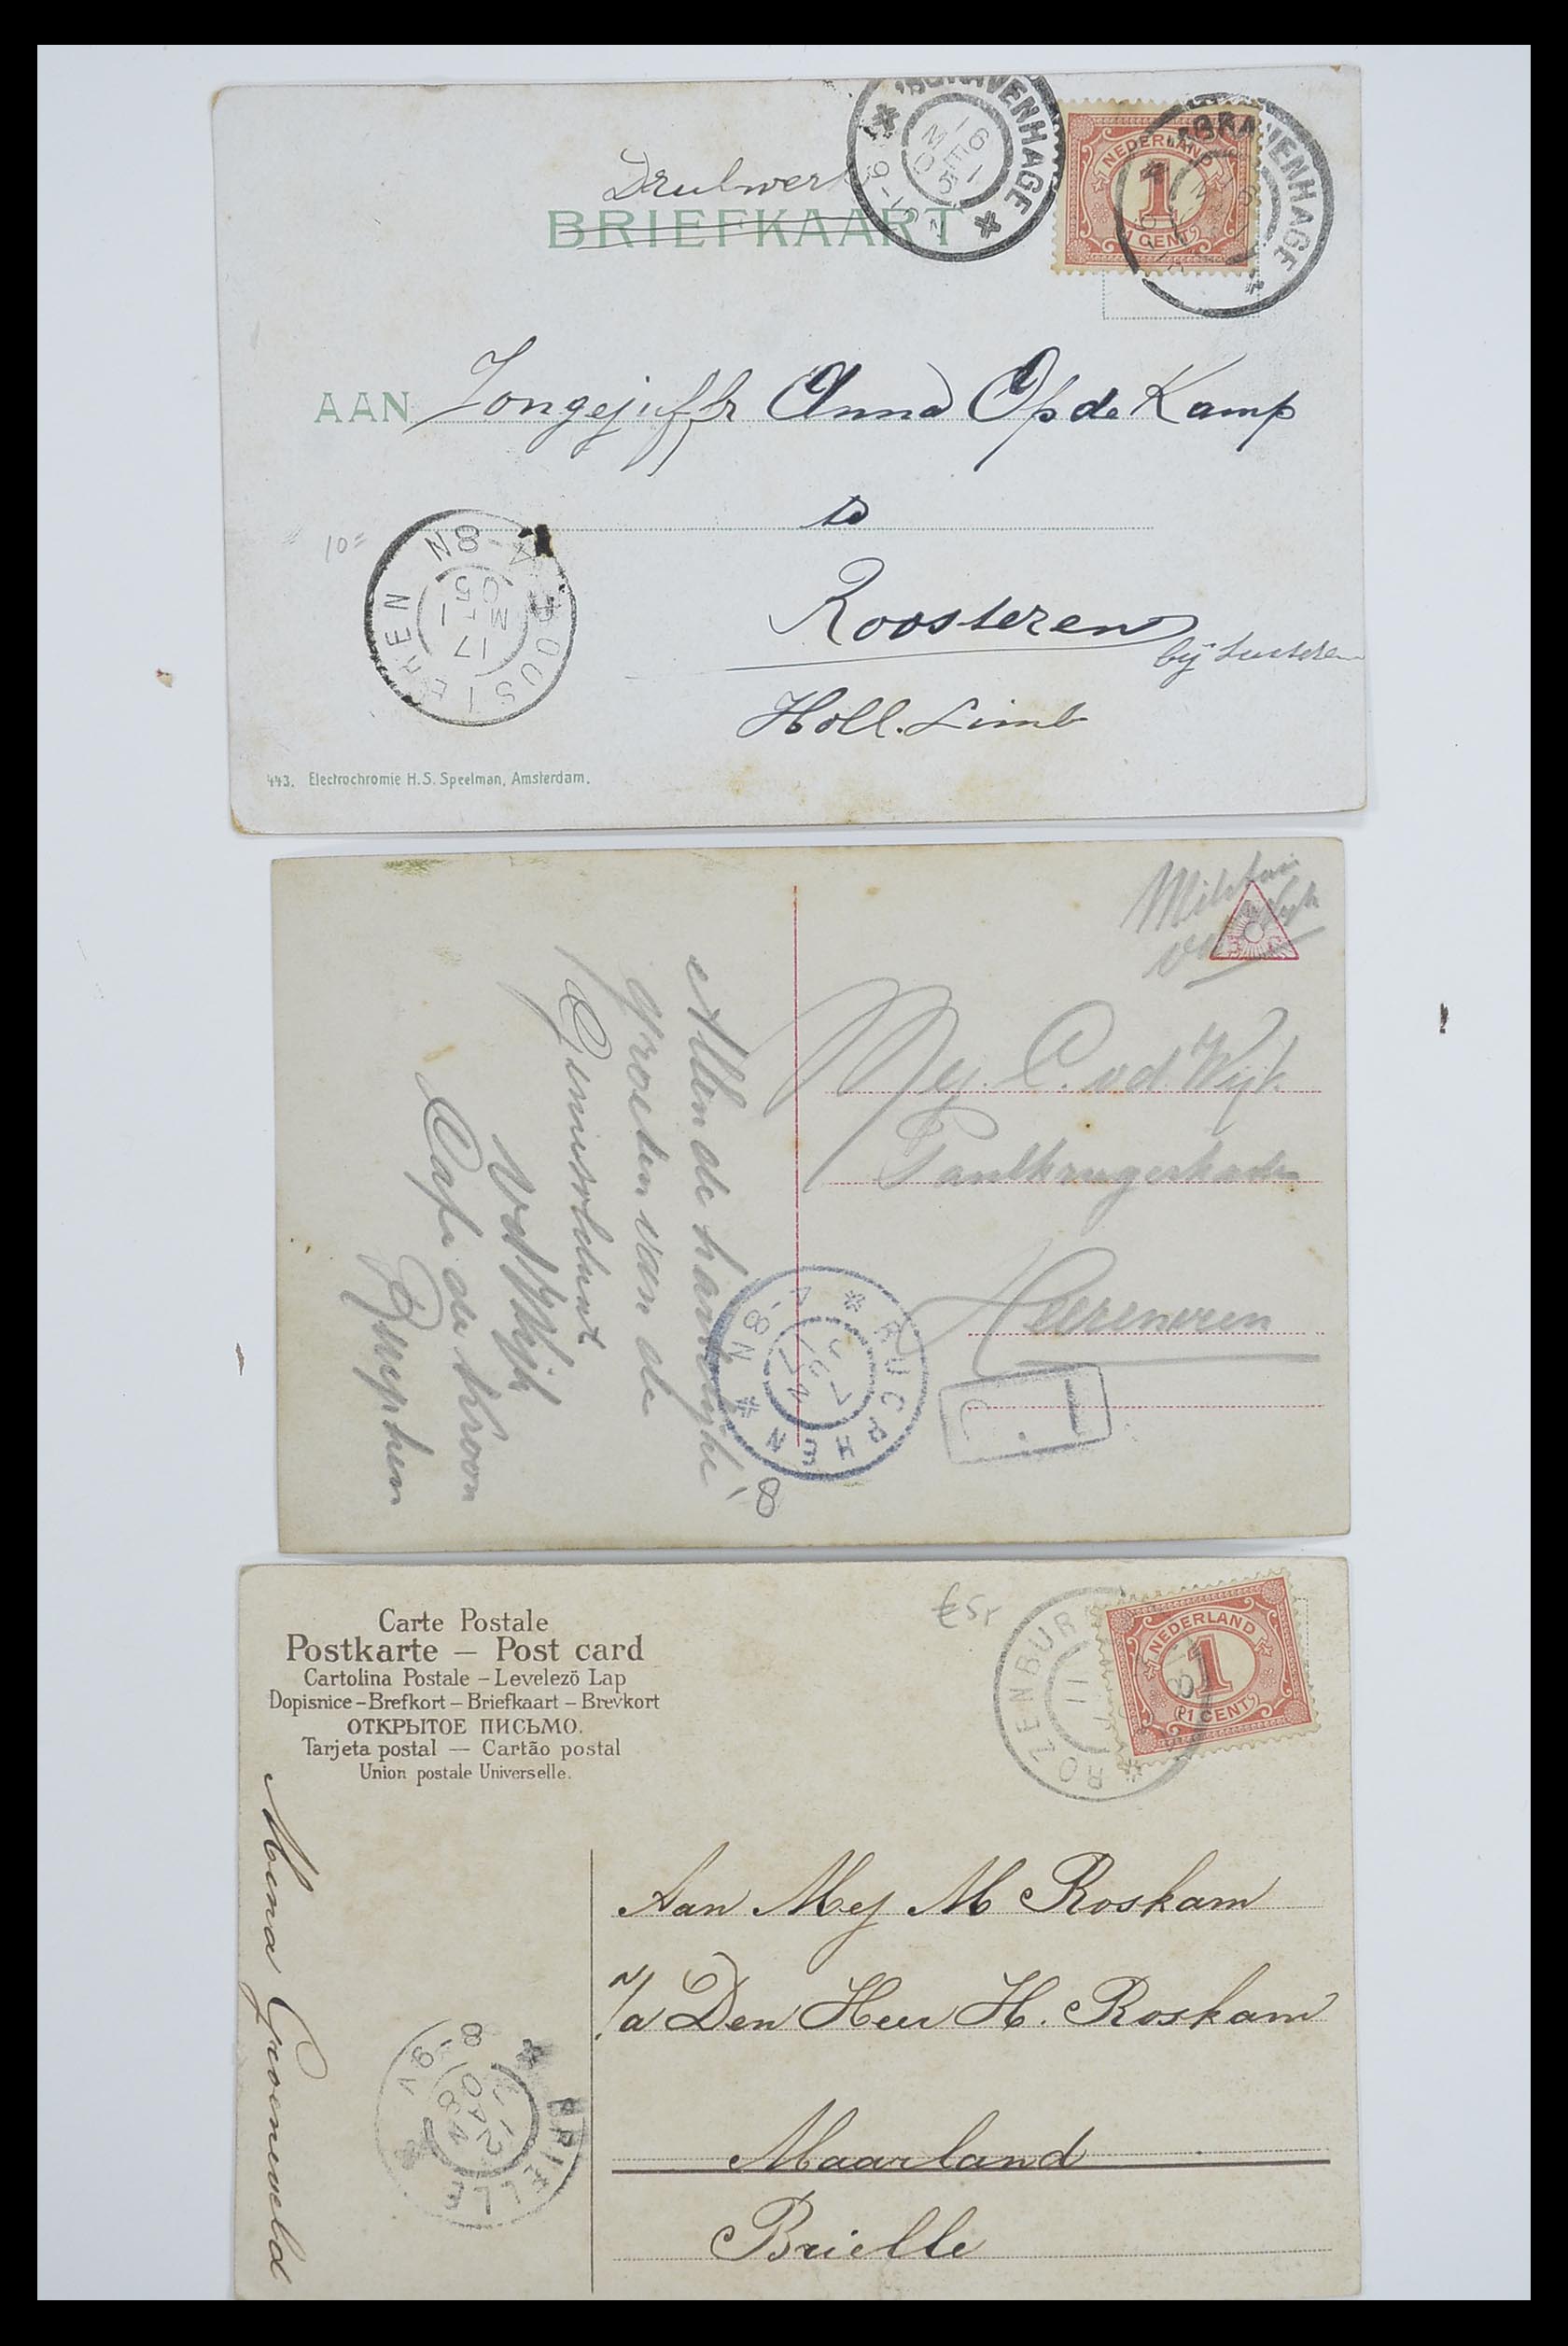 'SGRAVENHAGE
16 MEI 05
NEDERLAND
1
1 CENT
'SGRAVENHAGE
Drukwerk
BRIEFKAART
AAN Jongejuffr Anna Op de Kamp
te
10=
ROOSTEREN
17 MEI 05
7-8N
Roosteren
bij Susteren
Holl. Limb
443. Electrochromie H.S. Speelman, Amsterdam.
Militair
Mej. C. v.d. Wijk
Paulkrugerkade
Heerenveen
Allen de hartelijke
groeten van de
V d Wijk
Café de Kroon
RUCPHEN
7-8N
8
Carte Postale
Postkarte — Post card
Cartolina Postale – Levelezö Lap
Dopisnice – Brefkort – Briefkaart – Brevkort
ОТКРЫТОЕ ПИСЬМО.
Tarjeta postal — Cartão postal
Union postale Universelle.
€5,-
ROZENBURG
11
NEDERLAND
1
1 CENT
Aan Mej M Roskam
p/a Den Heer H. Roskam
Maarland
Brielle
BRIELLE
8-9V
Mena Groeneveld